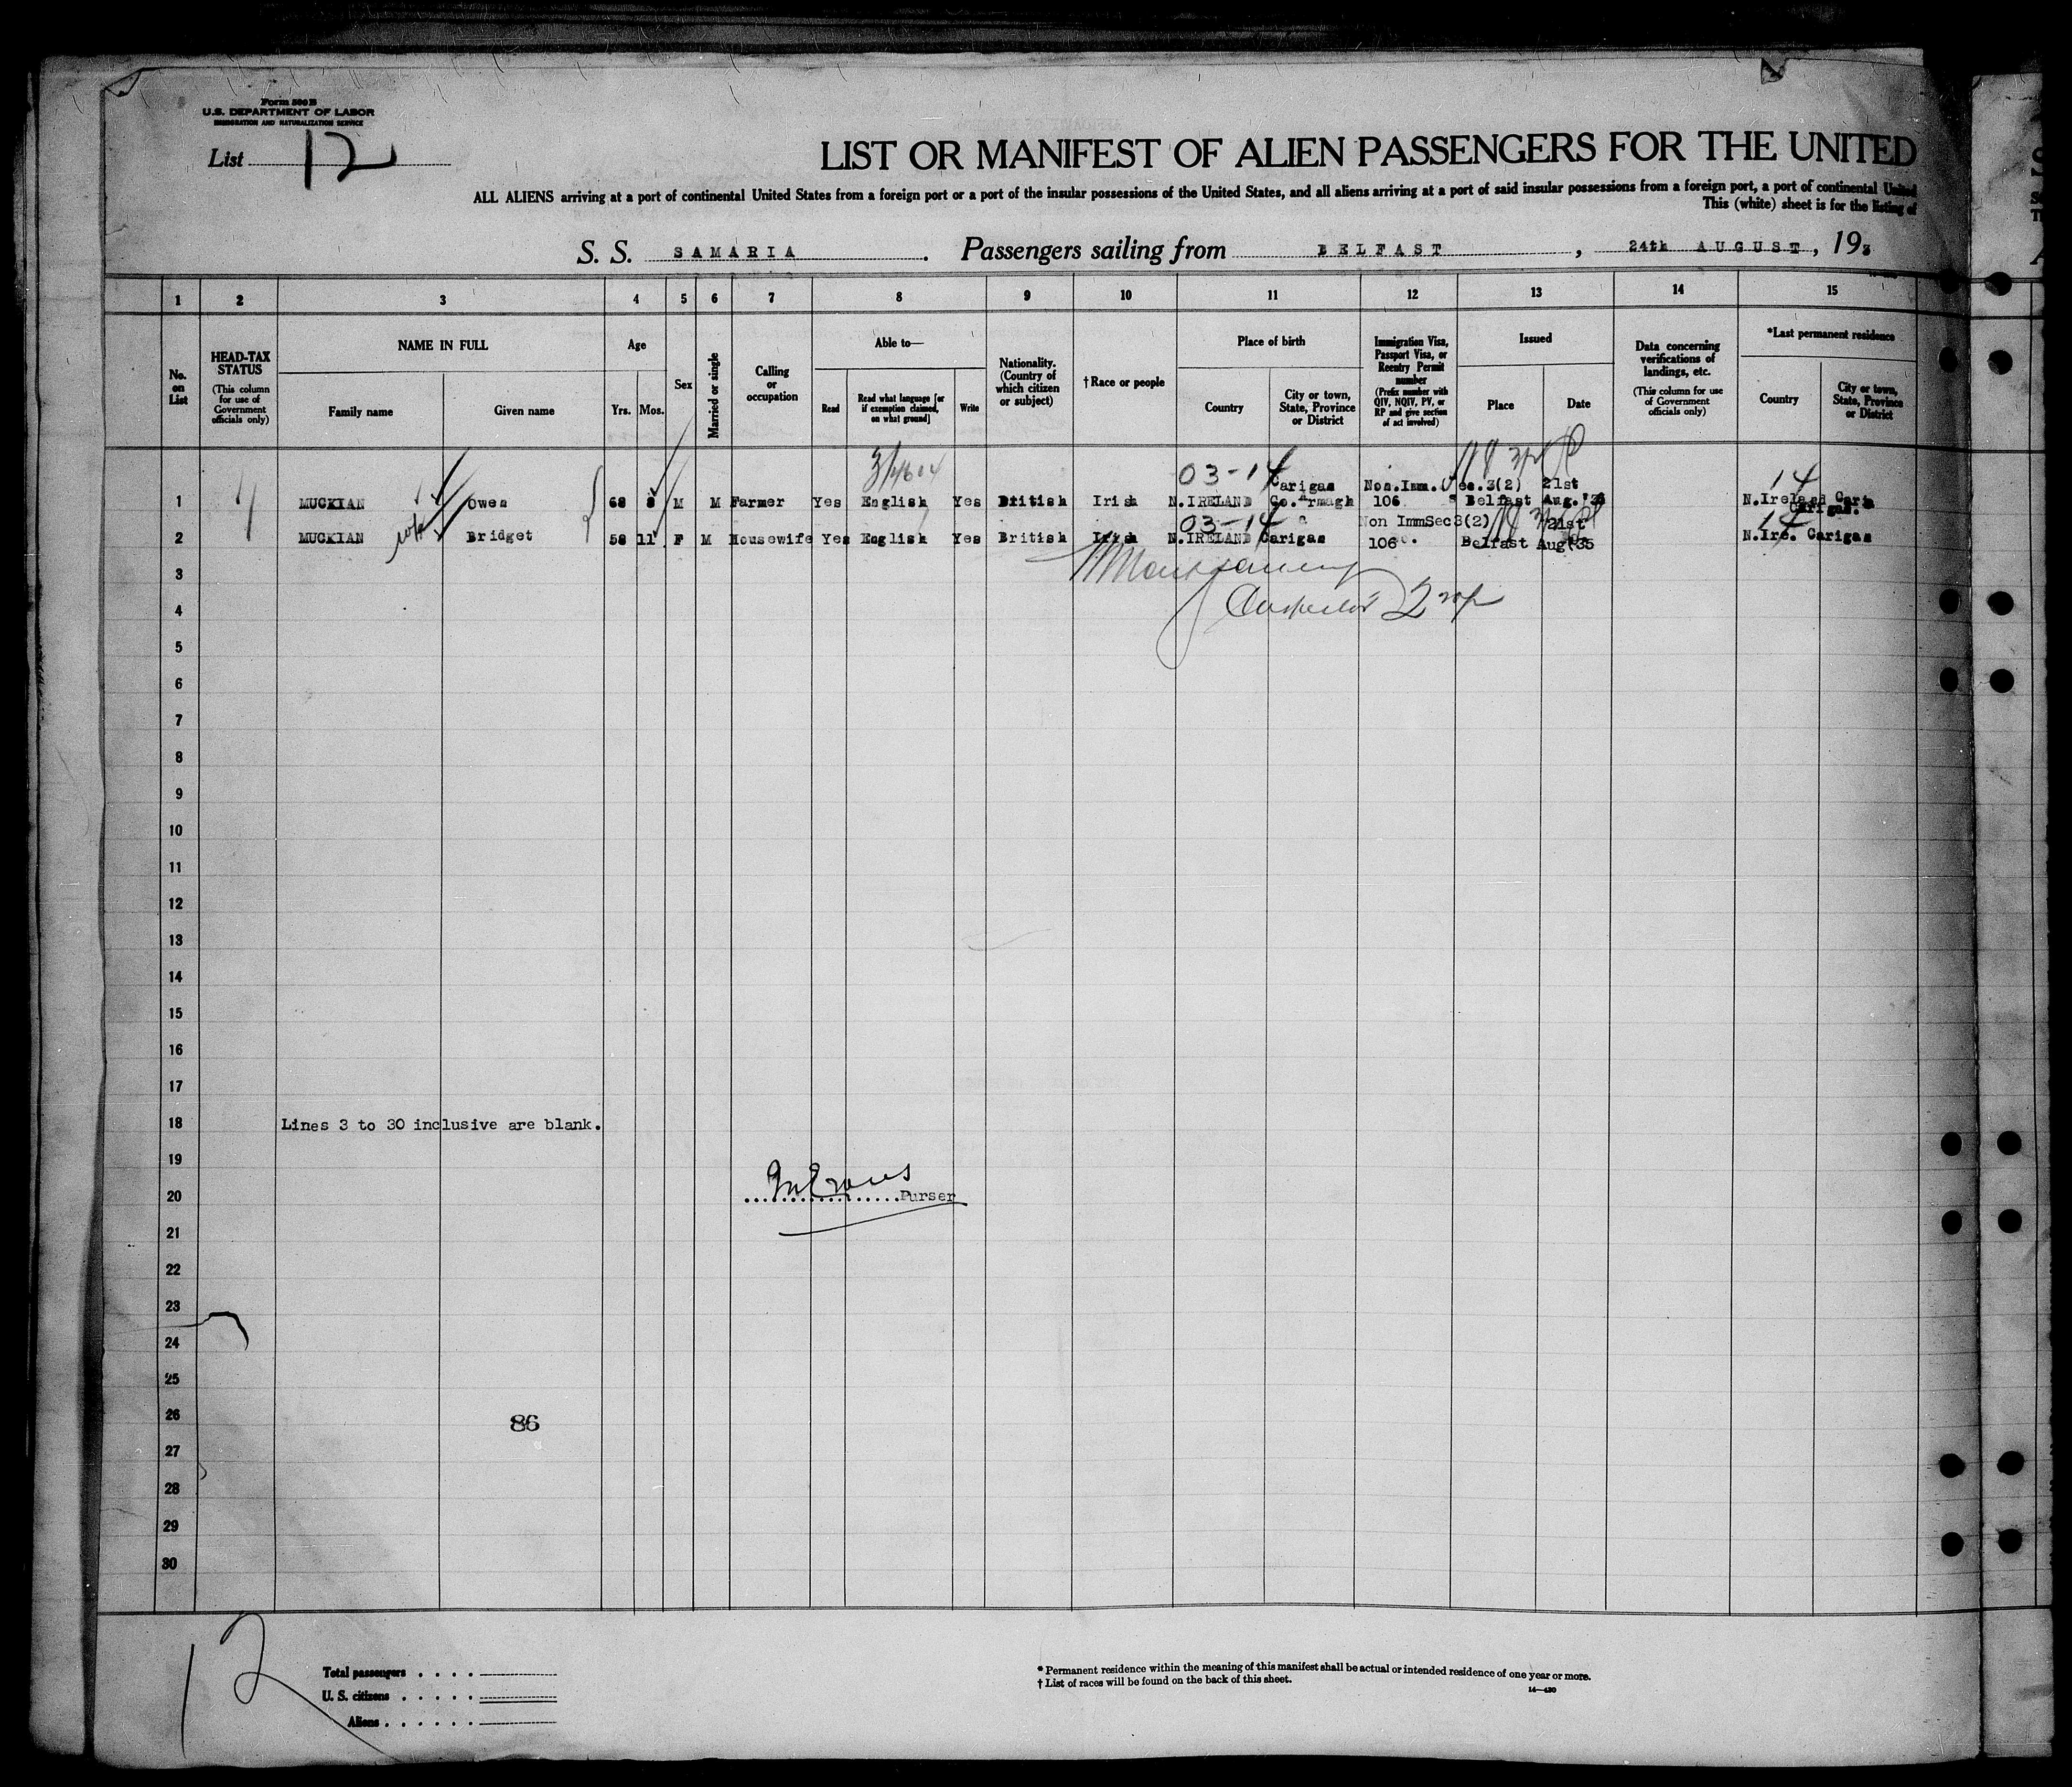 Form 500 B
U.S. DEPARTMENT OF LABOR
IMMIGRATION AND NATURALIZATION SERVICE
List 12
LIST OR MANIFEST OF ALIEN PASSENGERS FOR THE UNITED
ALL ALIENS arriving at a port of continental United States from a foreign port or a port of the insular possessions of the United States, and all aliens arriving at a port of said insular possessions from a foreign port, a port of continental United
This (white) sheet is for the listing of
S. S. SAMARIA . Passengers sailing from BELFAST , 24th AUGUST , 193
1 2 3 4 5 6 7 8 9 10 11 12 13 14 15
No. on List
HEAD-TAX STATUS
(This column for use of Government officials only)
NAME IN FULL
Family name
Given name
Age
Yrs. Mos.
Sex
Married or single
Calling or occupation
Able to—
Read
Read what language [or if exemption claimed, on what ground]
Write
Nationality. (Country of which citizen or subject)
†Race or people
Place of birth
Country
City or town, State, Province or District
Immigration Visa, Passport Visa, or Reentry Permit number
(Prefix number with QIV, NQIV, PV, or RP and give section of act involved)
Issued
Place
Date
Data concerning verifications of landings, etc.
(This column for use of Government officials only)
*Last permanent residence
Country
City or town, State, Province or District
03-14 14
Carigan Non.Imm. Sec.3(2) 21st
1 MUCKIAN Owen 68 8 M M Farmer Yes English Yes British Irish N.IRELAND Co.Armagh 106 Belfast Aug.'35 N.Ireland
Carigan.
03-14 Non ImmSec3(2) 21st 14
2 MUCKIAN Bridget 58 11 F M Housewife Yes English Yes British Irish N.IRELAND Carigan 106 Belfast Aug'35 N.Ire. Carigan
3
4 Inspector
5
6
7
8
9
10
11
12
13
14
15
16
17
18 Lines 3 to 30 inclusive are blank.
19
20 Purser
21
22
23
24
25
26 86
27
28
29
30
12
Total passengers
U. S. citizens
Aliens
* Permanent residence within the meaning of this manifest shall be actual or intended residence of one year or more.
† List of races will be found on the back of this sheet.
14—430